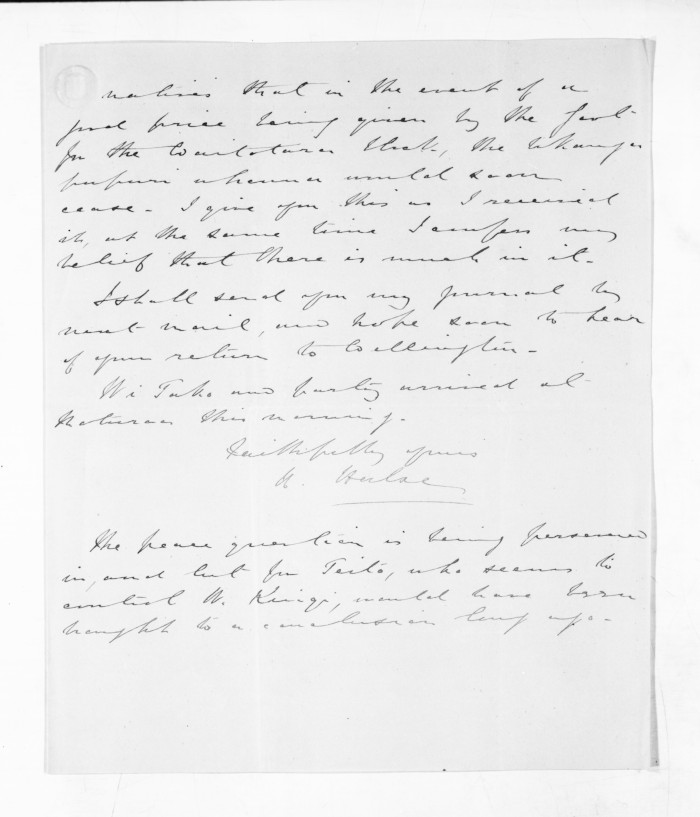 natives that in the event of a
good price being given by the Govt
for the Waitotara block, the Whanga
pupuri whenua would soon
cease - I give you this as I received
it, at the same time I confess my
belief that there is much in it -
I shall send you my journal by
next mail, and hope soon to hear
of your return to Wellington -
Wi Tako and party arrived at
this morning.
Faithfully yours
Halse
The peace question is being persevered
in, and but for Teito, who seems to
control W. Kingi, would have been
brought to a conclusion long ago -